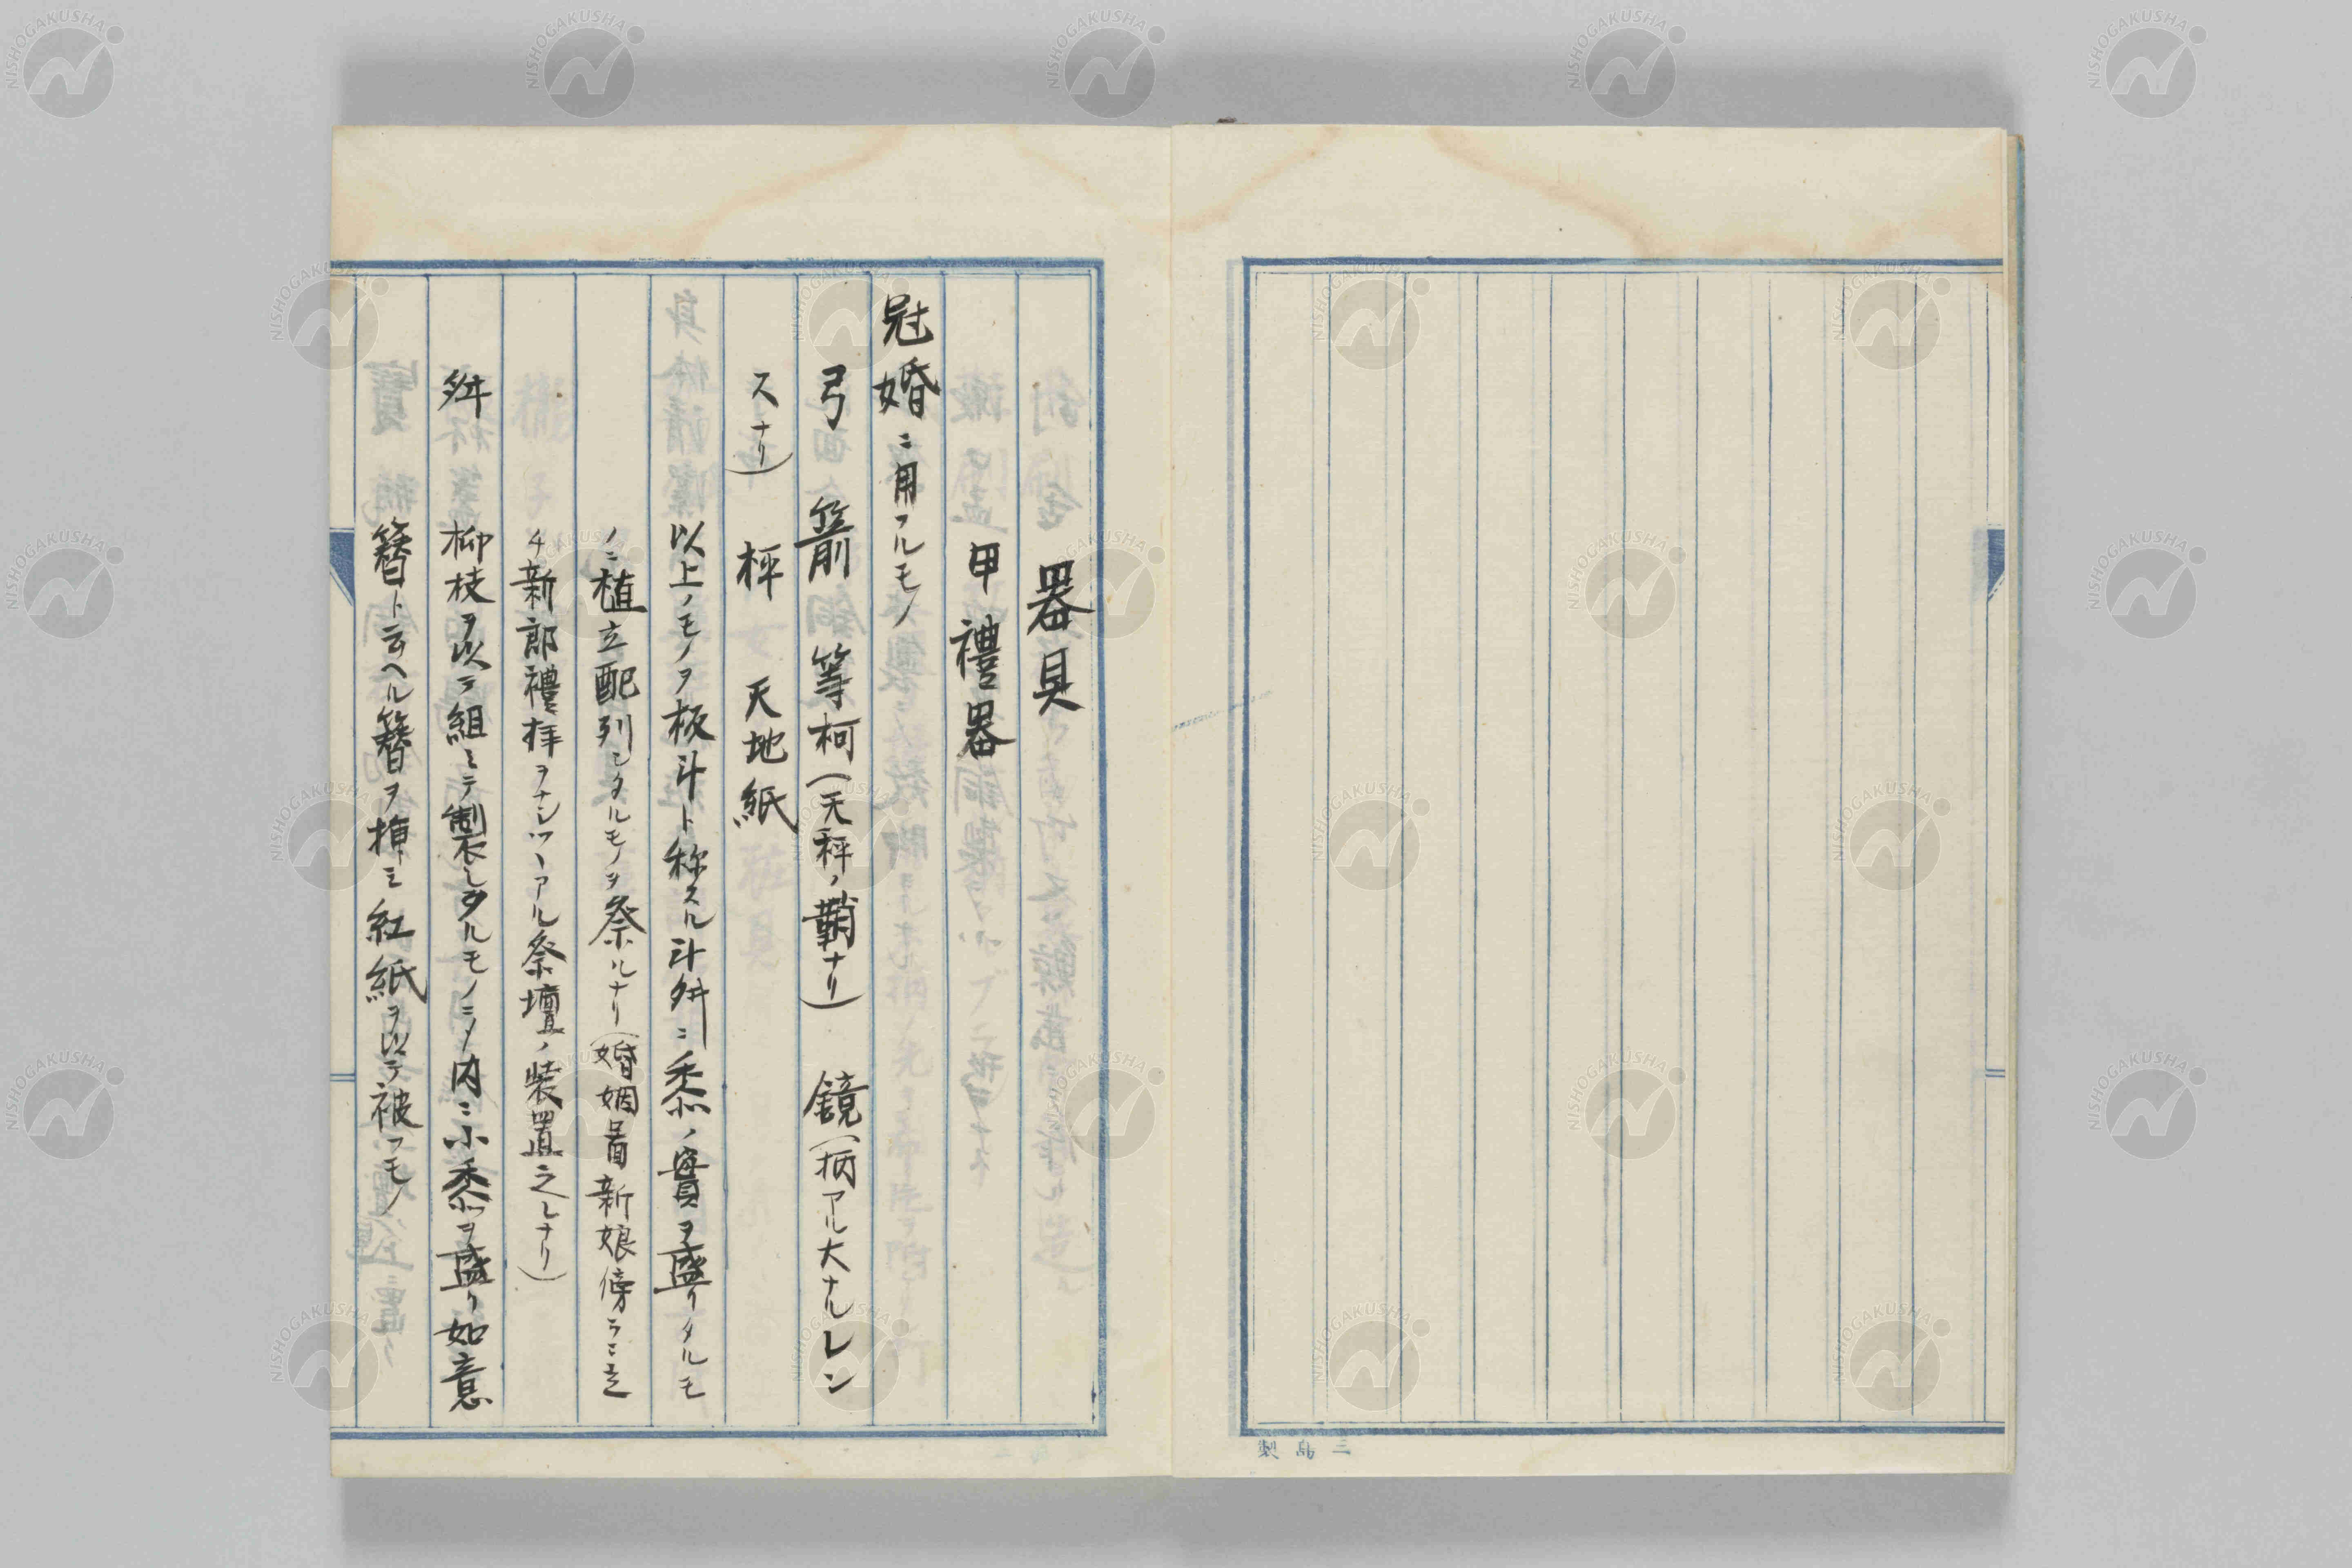 器具
甲禮器
冠婚ニ用フルモノ
弓 箭 等柯(天秤ノ鞘ナリ) 鏡(柄アル大ナルレン
スナリ) 秤 天地紙
以上ノモノヲ板斗ト称スル斗舛ニ黍ノ實ヲ盛リタルモ
ノニ植立配列シタルモノヲ祭ルナリ(婚姻當新娘傍ラニ立
チ新郎禮拝ヲナシツヽアル祭壇ノ装置之レナリ)
舛 柳枝ヲ以テ組ミテ製シタルモノニノ内ニ小黍ヲ盛リ如意
簪ト云ヘル簪ヲ挿ミ紅紙ヲ以テ被フモノ
三島製
NISHOGAKUSHA